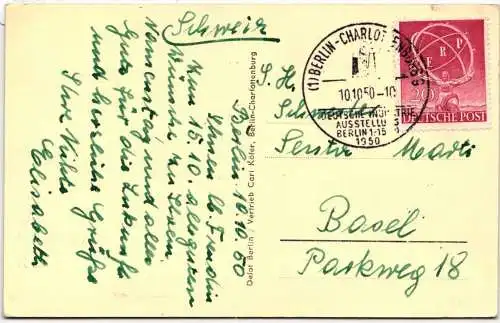 Schweiz
Berlin 10.10.50
Ihnen lb. Freundin
zum 15.10 alleguten
Wünsche zu Ihrem
Namenstag und alles
Gute für die Zukunft
und herzliche Grüße
Ihre
Elisabeth
Delot Berlin / Vertrieb Carl Köfer, Berlin-Charlottenburg
(1) BERLIN-CHARLOTTENBURG 9
10.10.50-10
DEUTSCHE INDUSTRIE
AUSSTELLU
BERLIN 1-15
1950
ERP
20
DEUTSCHE POST
S. H.
Schwester
Senta Marti
Basel
Parkweg 18